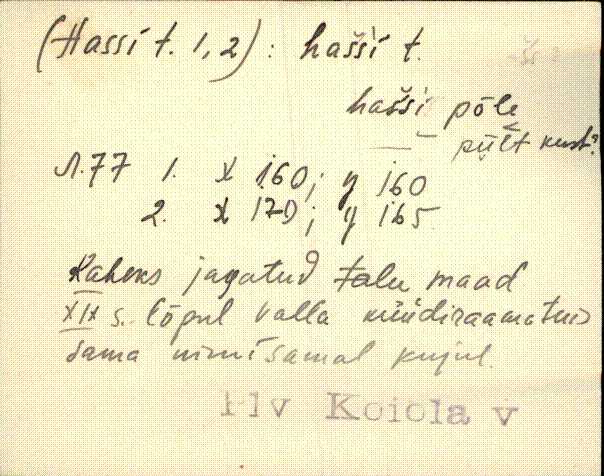 (Hassi t. 1, 2) : hašši t.
hašši põle
piilt kust?
Л.77 1. x 160; y 160
2. x 170; y 165
Kaheks jagatud talu maad
XIX s. lõpul valla müüdiraamatuis
sama nimi samal kujul.
Plv Koiola v